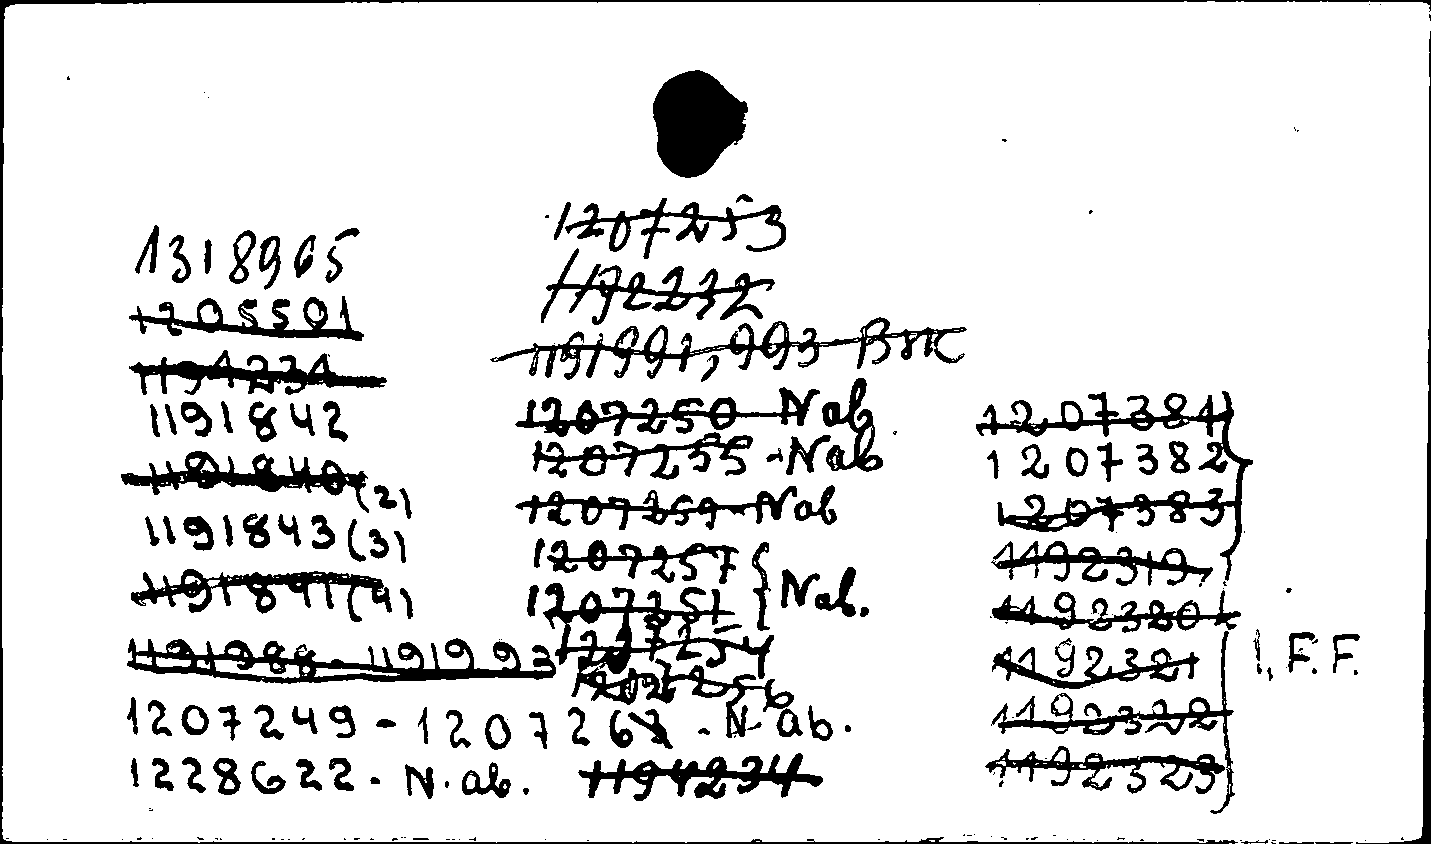 1318965
1205501
1191842
1191840 (2)
1191843 (3)
1191841 (4)
1191988 - 1191993
1207249 - 120726 - N ab.
1228622 - N. ab. 1194234
1207253
1192232
1191991, 993
1207250 Nab
1207255 - Nab
1207259 - Nab
1207257
1207251 } Nab.
1207254
1207256
1207381
1207382
1207383
1192319
1192320
1192321 I. F. F.
1192322
1192323